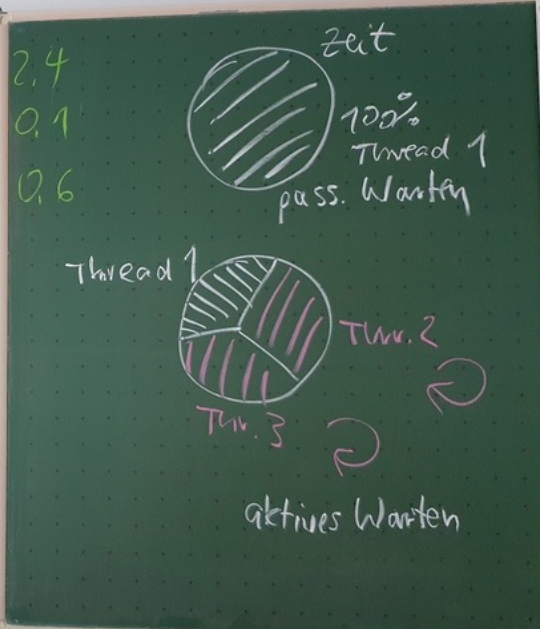 2.4
0.1
0.6
Zeit
100%
Thread 1
pass. Warten
Thread 1
Thr. 2
Thr. 3
aktives Warten